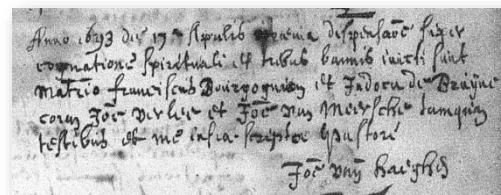 Anno 1693 die 17ᵃ Aprilis praevia dispensaõe super
cognatione spirituali et tribus bannis iuncti sunt
matrio franciscus Bourgoguion et Judoca de Bruÿne
coram Joẽ Verlie et Joẽ van Meersche tamquam
testibus et me infra scripto Pastore
Joẽ vanÿ Haeghen